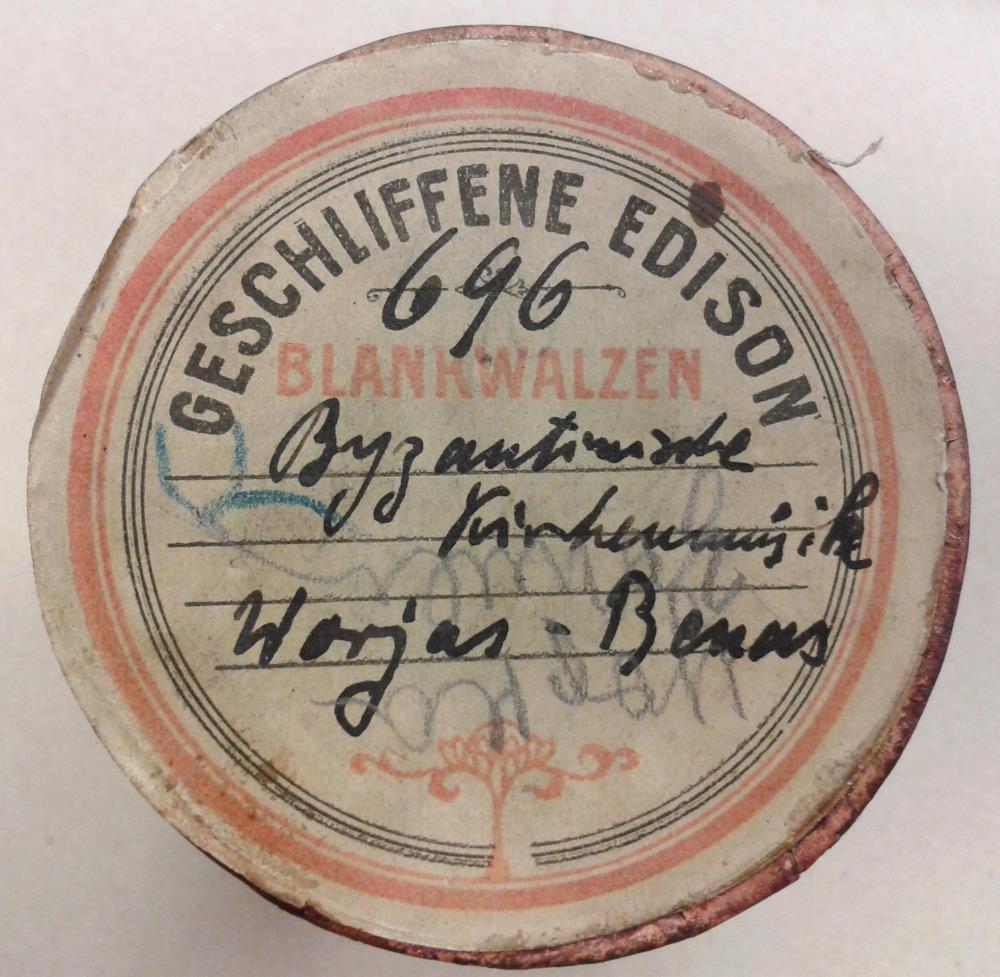 GESCHLIFFENE EDISON
696
BLANKWALZEN
Byzantinische
Kirchenmusik
Worjas - Benas